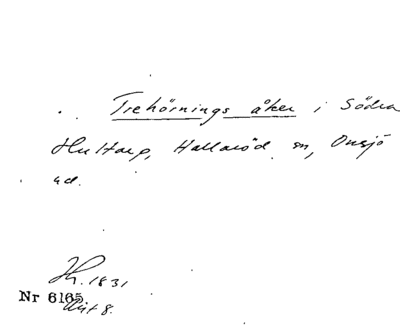 Trehörnings åker i Södra
Hultarp, Hallaröd sn, Onsjö
hd.
Th. 1831
Nr 6165
Akt 8.